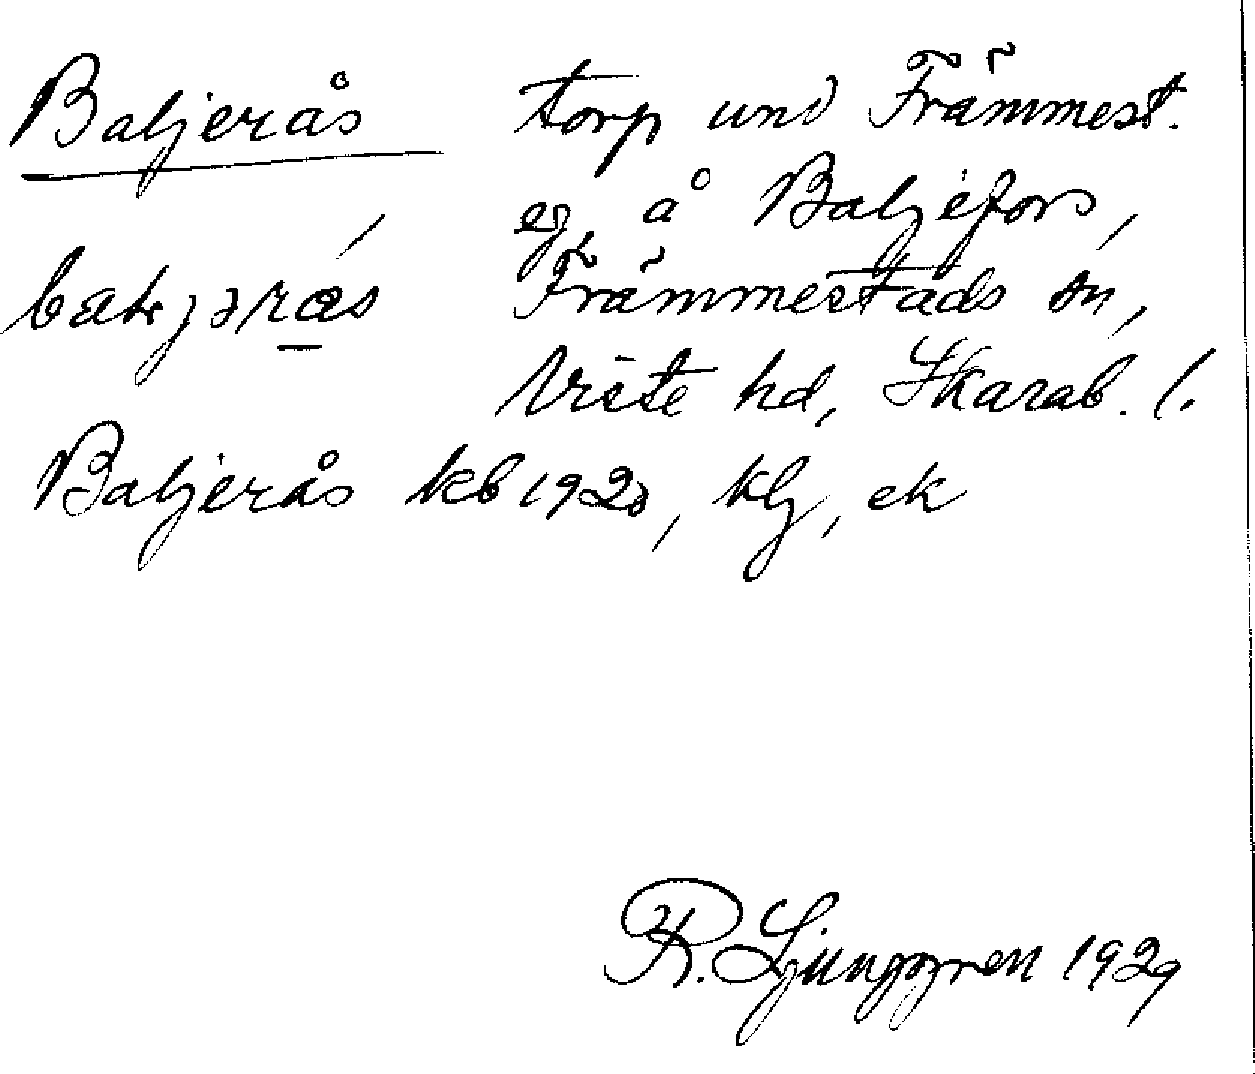 Baljerås torp und Främmest.
eg å Baljefors,
Främmestads sn,
Viste hd, Skarab. l.
Baljerås kb 1920, klj, ek
R. Ljunggren 1929